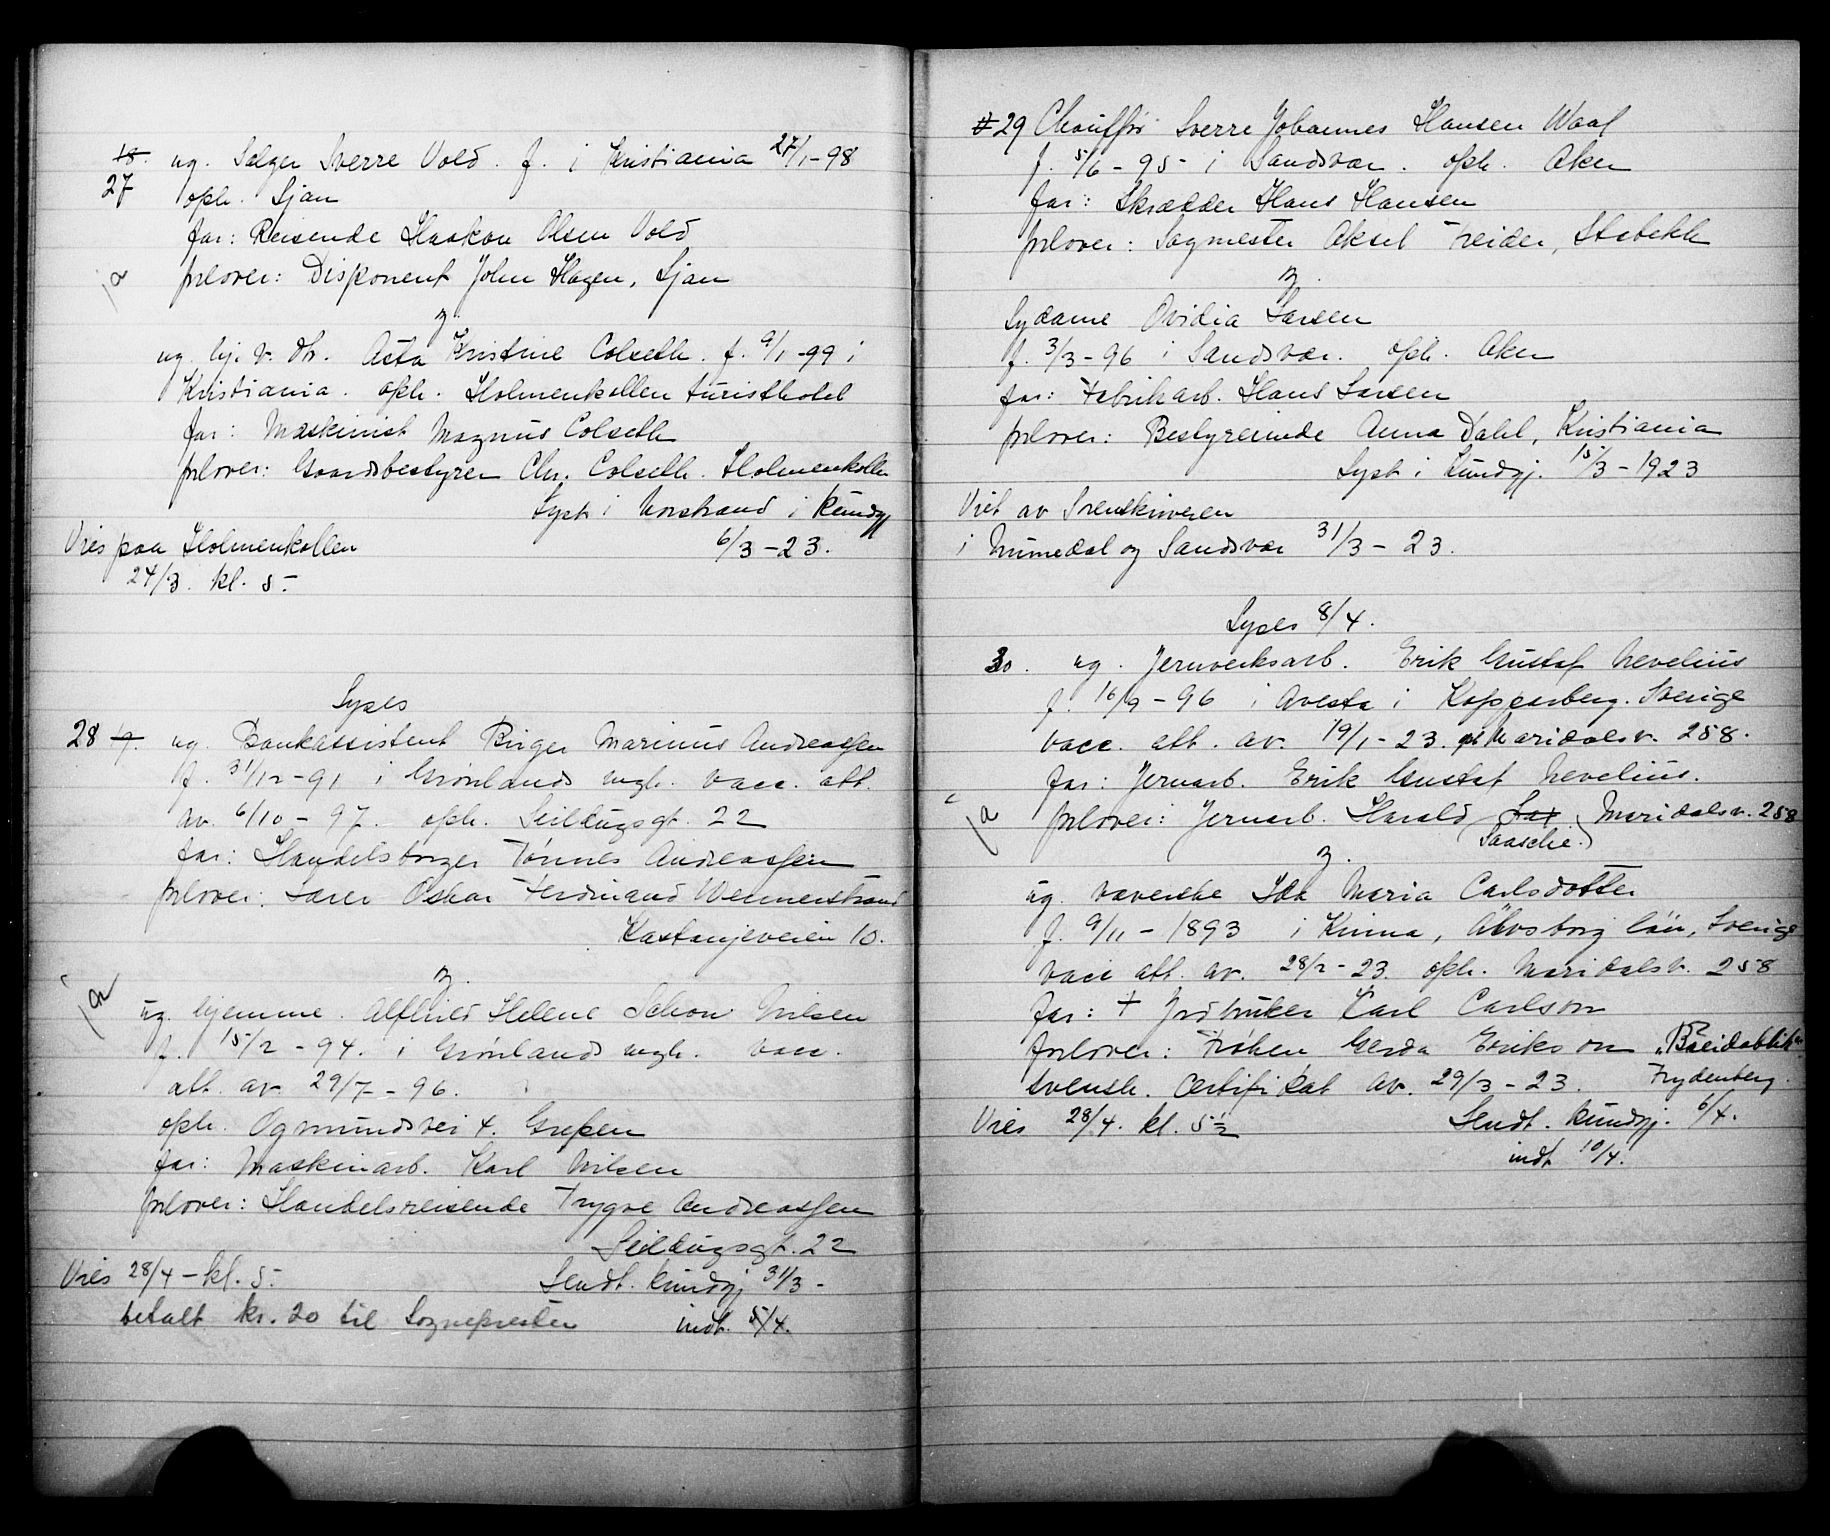 18. ug. Selger Sverre Vold. f. i Kristiania 27/1-98
27 oph. Ljan
far: Reisende Haakon Olsen Vold
ja forlover: Disponent John Hagen, Ljan
og
ug. hj. v. Asta Kristine Colseth. f. 9/1-99 i
Kristiania. oph. Holmenkollen turisthotel
far: Maskinist Magnus Colseth
forlover: Gaardsbestyrer Chr. Colseth. Holmenkollen
Lyst i Norstrand i kundgj
Vies paa Holmenkollen 6/3-23.
24/3. kl. 5-
Lyses
28 ug. Bankassistent Birger Marinus Andreassen
f. 31/12-91 i Grønlands mgh. vacc. att.
av 6/10-97. oph. Seildugsgt. 22
far: Handelsborger Tønnes Andreassen
forlover: Lærer Oskar Ferdinand Wennerstrand
Kastanjeveien 10.
og.
ja
ug. hjemme. Alfhild Helene Schou Nilsen
f. 15/2-94. i Grønlands mgh. vacc.
att. av 29/7-96.
oph. Ogmundsvei 4. Grefsen
far: Maskinarb. Karl Nilsen
forlover: Handelsreisende Trygve Andreassen
Seildugsgt. 22
Vies 28/4-kl. 5- Sendt. kundgj 31/3-
betalt kr. 20 til Sognepresten indt. 5/4.
29 Chauffør Sverre Johannes Hansen Waal
f. 5/6-95- i Sandsvær. oph. Aker
far: Skrædder Hans Hansen
forlover: Sagmester Aksel Freider, Stabekk
og.
Sydame Ovidia Larsen
f. 3/3-96 i Sandsvær. oph. Aker
far: Fabrikarb. Hans Larsen
forlover: Bestyrerinde Anna Dahl, Kristiania
Lyst i kundgj. 15/3-1923
Viet av Sorenskriveren
i Numedal og Sandsvær 31/3-23.
Lyses 8/4.
30. ug. Jernverksarb. Erik Gustaf Nevelius
f. 16/9-96 i Avesta i Kopparberg. Sverige
vacc. att. av. 19/1-23. oph Maridalsv. 258.
far: Jernarb. Erik Gustaf Nevelius.
ja forlover: Jernarb. Harald Maridalsv. 258
(Saasche.)
og.
ug. væverske Ida Maria Carlsdotter
f. 9/11-1893 i Kinna, Älvsborg län, Sverige
vacc att. av. 28/2-23. oph. Maridalsv. 258
far: + Jordbruker Karl Carlson
forlover: Frøken Gerda Erikson "Breidablik"
svensk. Certifikat av. 29/3-23. Frydenberg.
Vies 28/4. kl. 5 1/2 Sendt. kundgj. 6/4.
indt 10/4.